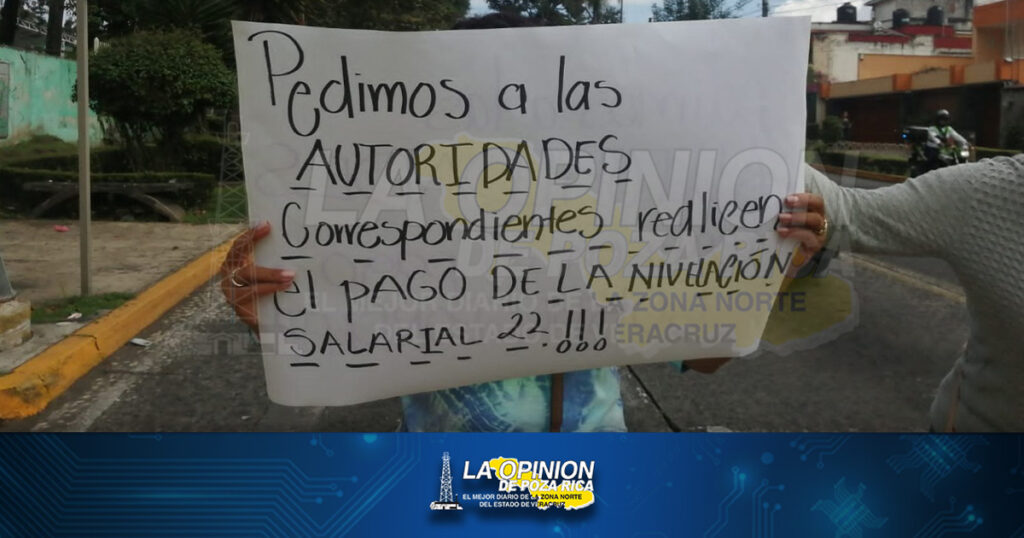 Pedimos a las
AUTORIDADES
Correspondientes realicen
el PAGO DE LA NIVELACIÓN
SALARIAL 22 !!!
LA OPINION
DE POZA RICA
EL MEJOR DIARIO DE LA ZONA NORTE
DEL ESTADO DE VERACRUZ
LA OPINION
DE POZA RICA
EL MEJOR DIARIO DE LA ZONA NORTE
DEL ESTADO DE VERACRUZ